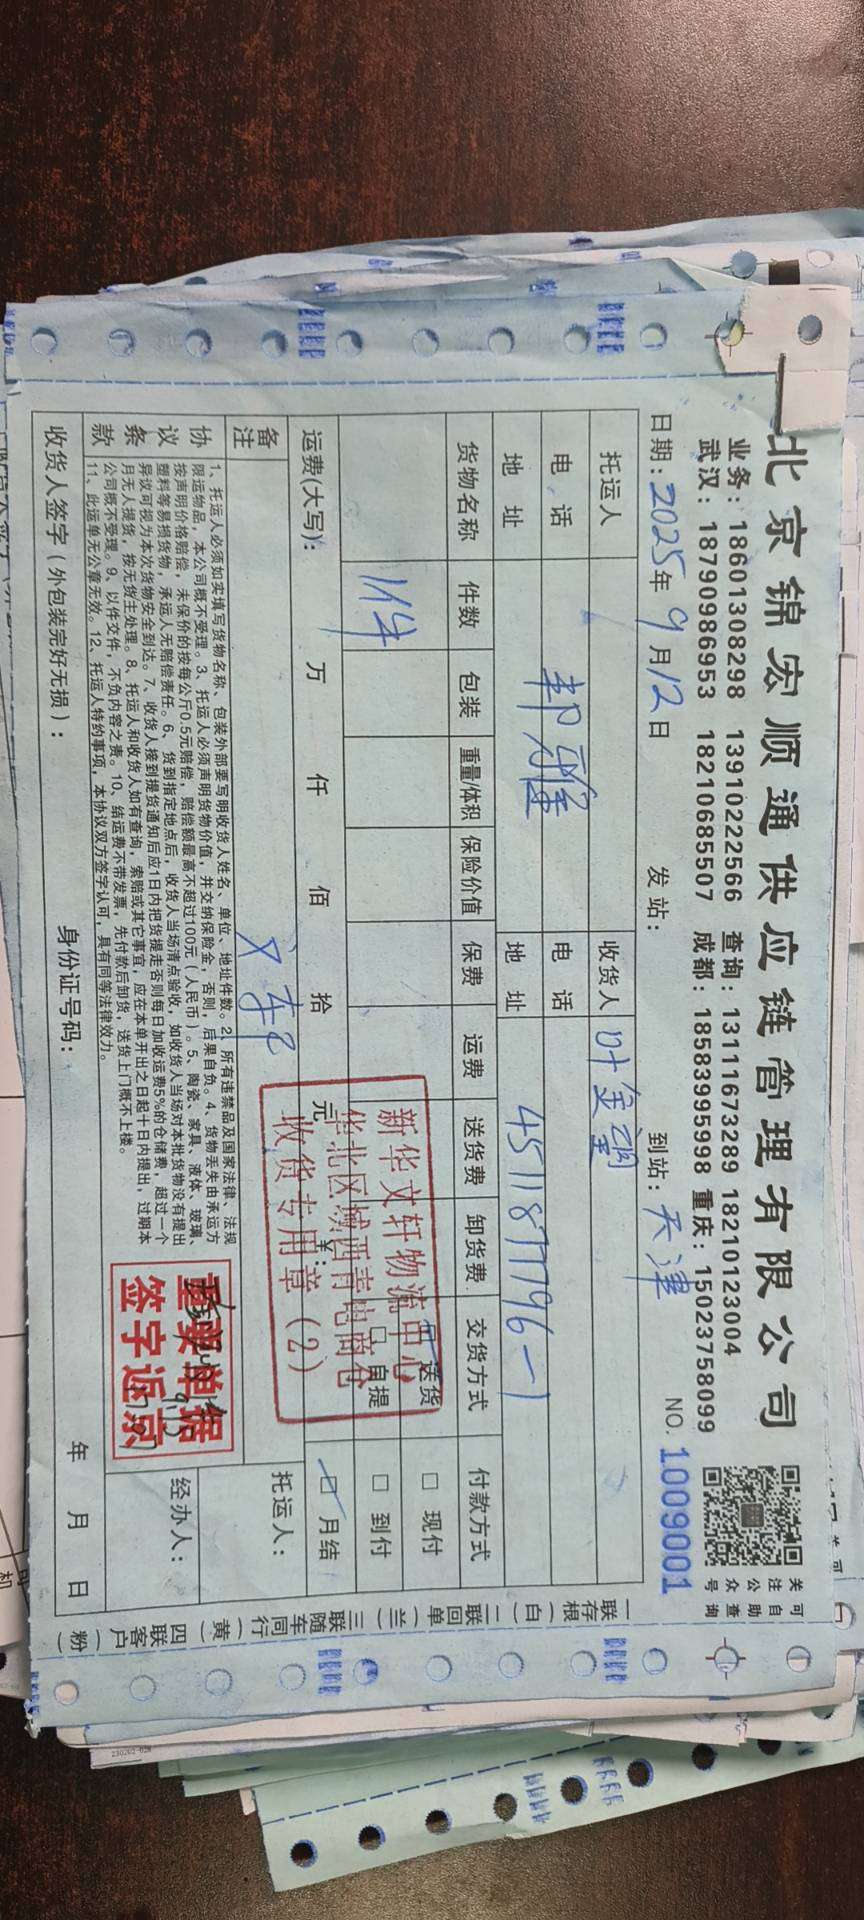 北京锦宏顺通供应链管理有限公司
业务：18601308298 13910222566 查询：13111673289 18210123004
武汉：18790986953 18210685507 成都：18583995998 重庆：15023758099
关注公众号
可自助查询
日期：2025年9月12日 发站： 到站：天津 NO. 1009001
托运人 收货人 叶金
电话 郝雅 电话
地址 地址 4511877796-1
货物名称 件数 包装 重量/体积 保险价值 保费 运费 送货费 卸货费 交货方式 付款方式
11件
送货
自提
现付
到付
月结
运费(大写)： 万 仟 佰 拾 元 ¥：
新华文轩物流中心
华北区域西青电商仓
收货专用章（2）
备注
托运人：
经办人：
协议条款
1、托运人必须如实填写货物名称、包装外部要写明收货人姓名、单位、地址件数。2、所有违禁品及国家法律、法规
限运物品，本公司概不受理。3、托运人必须声明货物价值，并交纳保险金，否则，后果自负。4、货物丢失由承运方
按声明价格赔偿，未保价的按每公斤0.5元赔偿，赔偿额最高不超过100元（人民币）。5、陶瓷、家具、液体、玻璃、
塑料等易损货物，承运人无赔偿责任。6、货到指定地点后，收货人当场清点验收，如收货人当场对本批货物没有提出
异议可视为本次货物安全到达。7、收货人接到提货通知后应1日内把货提走否则每日加收运费5%的仓储费，超过一个
月无人提货，按无货主处理。8、托运人和收货人如有查询，索赔或其它事宜，应在本单开出之日起十日内提出，过期本
公司概不受理。9、以件交件，不负内容之责。10、结运费不带发票，先付款后卸货，送货上门概不上楼。
11、此运单无公章无效。12、托运人特约事项，本协议双方签字认可，具有同等法律效力。
重要单据
签字返京
9.13
收货人签字（外包装完好无损）： 身份证号码： 年 月 日
一联存根（白）二联回单（兰）三联随车同行（黄）四联客户（粉）